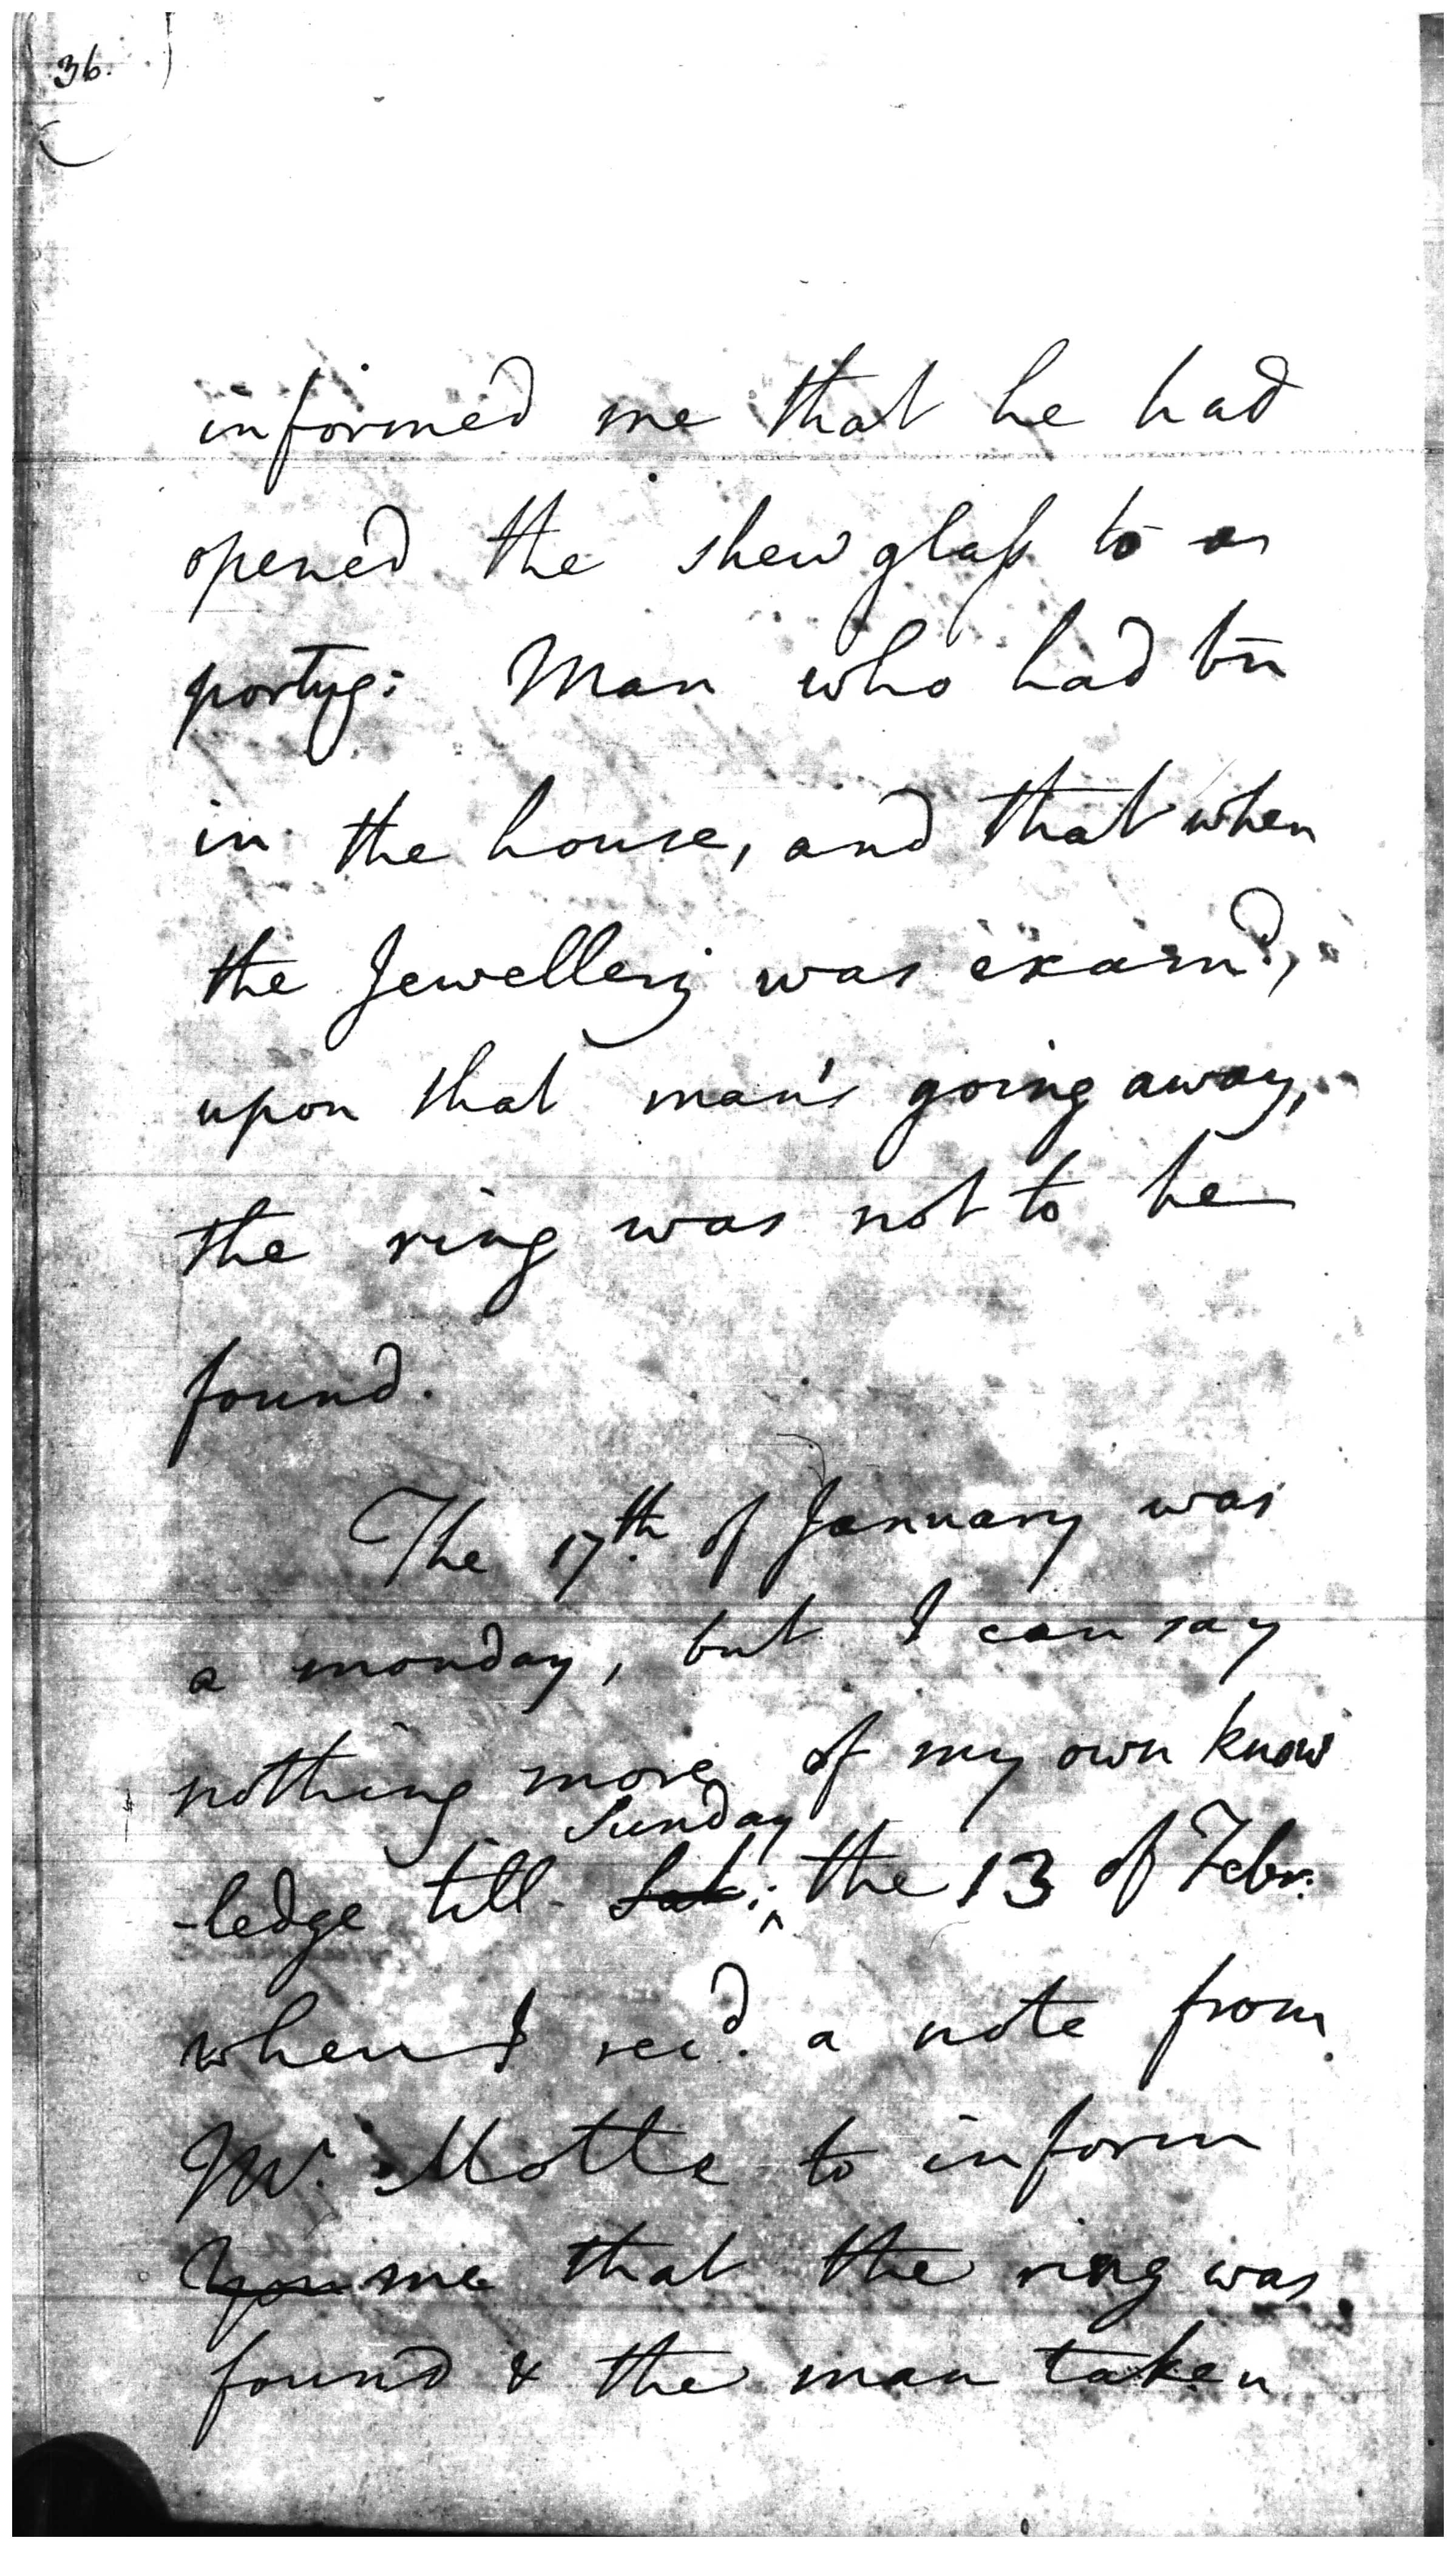 36.
informed me that he had
opened the shew glass to a
portug: Man who had bn
in the house, and that when
the Jewellery was examd,
upon that man's going away,
the ring was not to be
found.
The 17th. of January was
a monday, but I can say
nothing more of my own know
Sunday
-ledge till Sat: the 13 of Febr:
when I recd. a note from
Mr. Motte to inform
you me that the ring was
found & the man taken